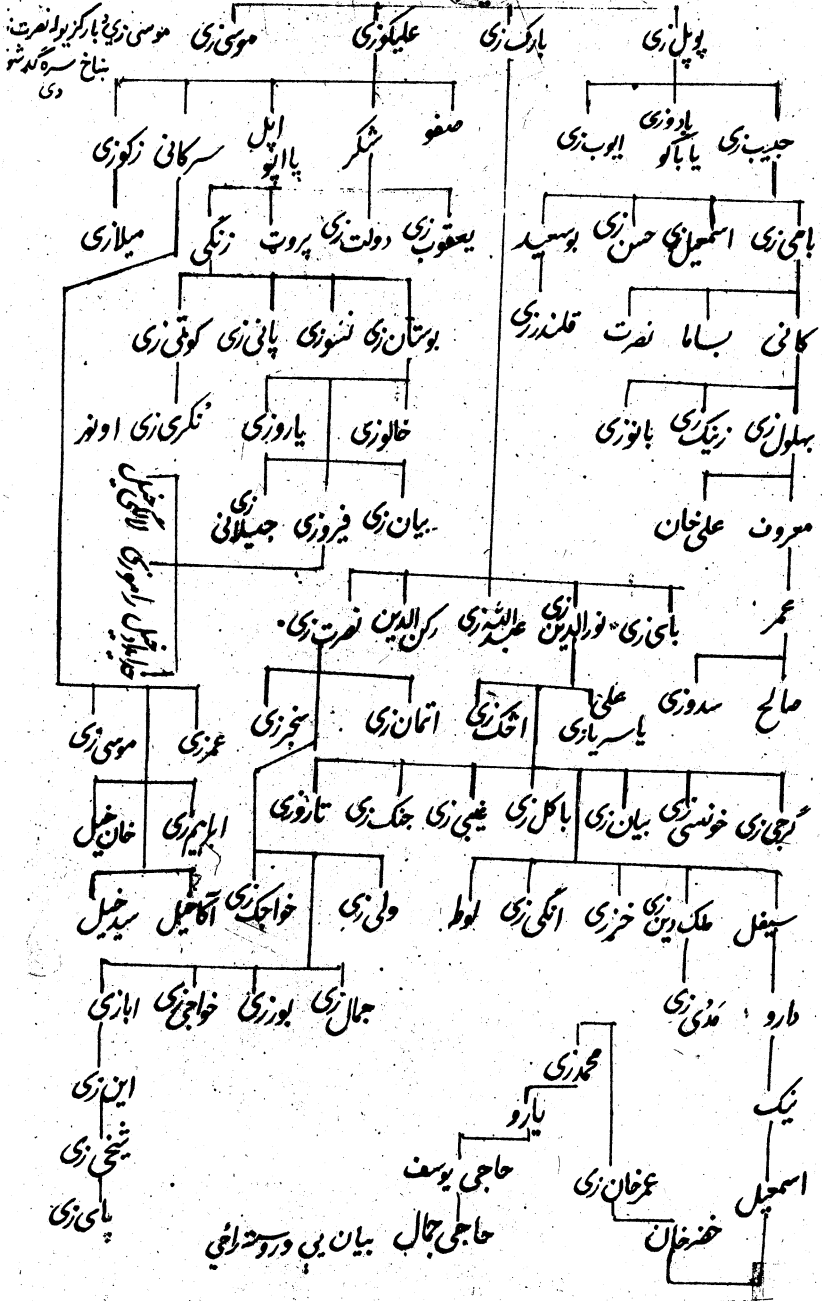 موسی زي د بارکزیو له نصرت:
بناخ سره گډ شو
دی
پوپل زی
بارک زی
علیکوزی
موسی زی
حبیب زی
یادوزی
یا باکو
ایوب زی
صفو
شکر
اپل
یا اپو
سرکانی
زکوزی
بامی زی
اسمعیل زی
حسن زی
بوسعید
یعقوب زی
دولت زی
پروت
زنگی
میلازی
کانی
بساما
نصرت
قلندرزی
بوستان زی
نسوزی
پانی زی
کوتی زی
بهلول زی
زنیک زی
بانوزی
خالوزی
یاروزی
نکری زی
اونهر
معروف
علی خان
بیان زی
فیروزی
جیلانی زی
عمر
بای زی
نورالدین زی
عبدالله زی
رکن الدین
نصرت زی
صالح
سدوزی
علی
یا سریازی
اڅک زی
اتمان زی
سنجرزی
عمرزی
موسی زی
گرجی زی
خونسی زی
بیان زی
باکل زی
غیبی زی
جنک زی
تاروزی
ابراهیم زی
خان خیل
سیفل
ملک دین زی
خرزی
انگی زی
لوط
ولی زی
خواجک زی
آکاخیل
سید خیل
دارو
مدی زی
جمال زی
بورزی
خواجی زی
ابازی
محمدزی
این زی
نیک
یارو
شیخی زی
حاجی یوسف
عمرخان زی
اسمعیل
پای زی
خضرخان
حاجی جمال
بیان یې وروسته راځي